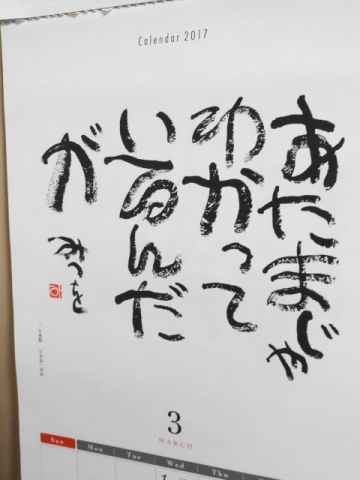 Calendar 2017
あたまじゃ
わかって
いるんだ
が
みつを
3
MARCH
Sun Mon Tue Wed Thu
1